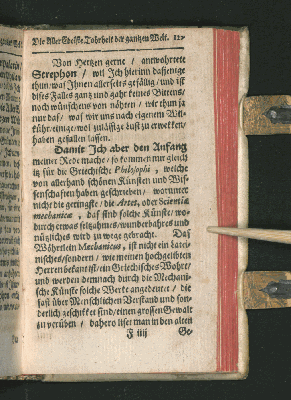 Die Aller Edelste Tohrheit der gantzen Welt.
Von Hertzen gerne / antwohrtete
Strephon / wil Ich hierinn dasjenige
thun / was Ihnen allerseits gefällig / und ist
dises Falles gantz und gahr keines Bittens/
noch wünschens von nöhten / wie thun ja
nur das / was wir uns nach eigenem Wil-
kühr / einige wol zulässige Lust zu erwekken/
haben gefallen lassen.
Damit Ich aber den Anfang
meiner Rede mache / so kommen mir gleich
itz für die Griechische Philosophi, welche
von allerhand schönen Künsten und Wis-
senschaften haben geschrieben / worunter
nicht die geringste / die Artes, oder Scientiæ
mechanicæ, das sind solche Künste / wo-
durch etwas seltzahmes / wunderbahres und
nützliches wird zu wege gebracht. Das
Wöhrtlein Mechanicus, ist nicht ein latei-
nisches / sondern / wie meinen hochgeliebten
Herren bekant ist / ein Griechisches Wohrt/
und werden demnach durch die Mechani-
sche Künste solche Werke angedeutet / die
fast über Menschlichen Verstand und son-
derlich geschikket sind / einen grossen Gewalt
zu verüben / dahero liset man in den alten
F iiij Ge-